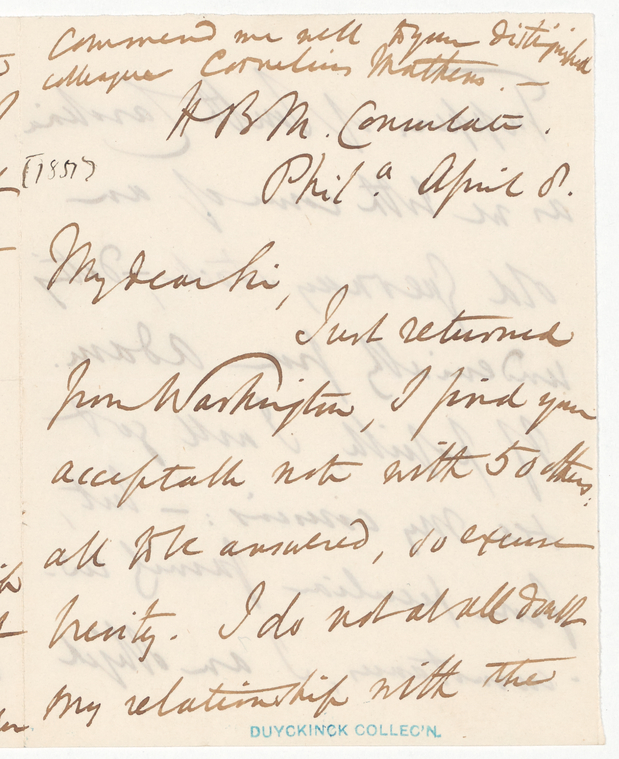 Commend me well to your distinguished
colleague Cornelius Mathews. —
H B M. Consulate.
Phil.a April 8.
[1857?]
My dear Sir,
Just returned
from Washington, I find your
acceptable note with 50 others,
all to be answered, so excuse
brevity. I do not at all doubt
my relationship with the
DUYCKINCK COLLEC'N.